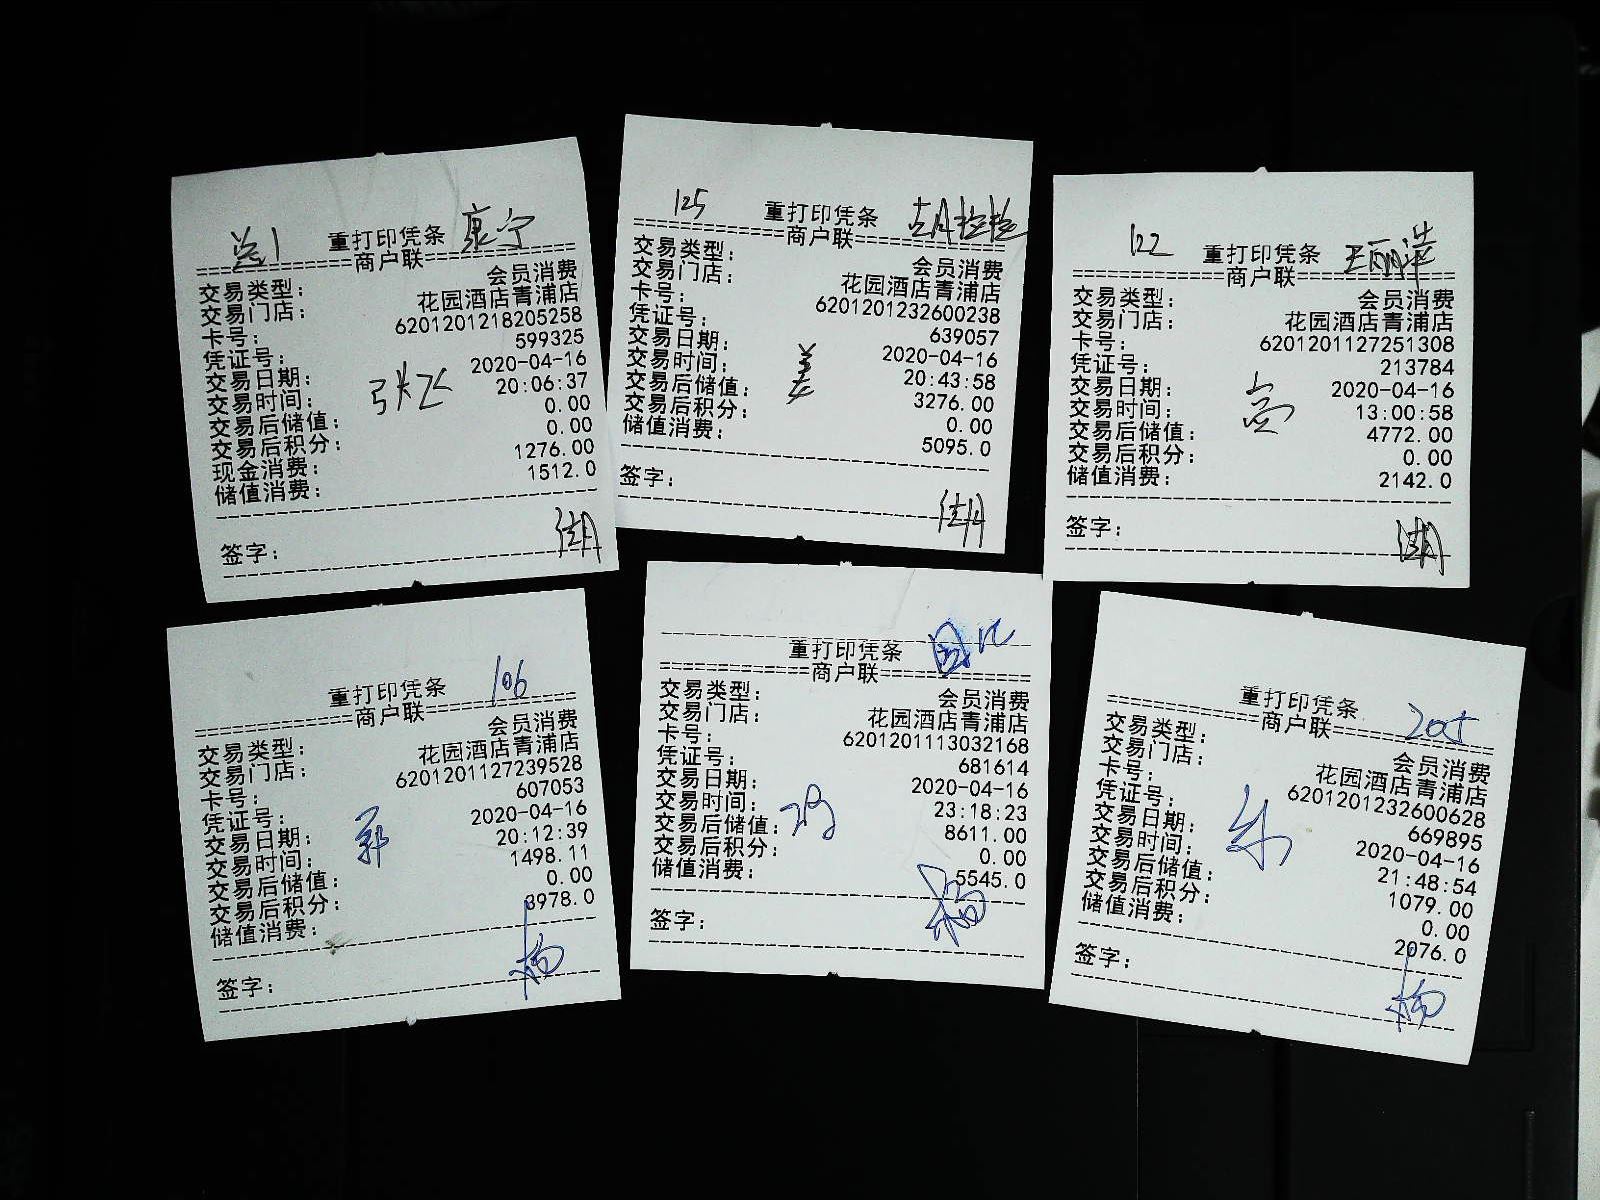 总1 重打印凭条 康宁
============商户联============
交易类型: 会员消费
交易门店: 花园酒店青浦店
卡号: 6201201218205258
凭证号: 599325
交易日期: 2020-04-16
交易时间: 20:06:37
交易后储值: 0.00
交易后积分: 0.00
现金消费: 1276.00
储值消费: 1512.0
签字:
125 重打印凭条
============商户联============
交易类型: 会员消费
交易门店: 花园酒店青浦店
卡号: 6201201232600238
凭证号: 639057
交易日期: 2020-04-16
交易时间: 20:43:58
交易后储值: 3276.00
交易后积分: 0.00
储值消费: 5095.0
签字:
122 重打印凭条 王丽萍
============商户联============
交易类型: 会员消费
交易门店: 花园酒店青浦店
卡号: 6201201127251308
凭证号: 213784
交易日期: 2020-04-16
交易时间: 13:00:58
交易后储值: 4772.00
交易后积分: 0.00
储值消费: 2142.0
签字:
重打印凭条 106
============商户联============
交易类型: 会员消费
交易门店: 花园酒店青浦店
卡号: 6201201127239528
凭证号: 607053
交易日期: 2020-04-16
交易时间: 20:12:39
交易后储值: 1498.11
交易后积分: 0.00
储值消费: 3978.0
签字: 杨
重打印凭条
============商户联============
交易类型: 会员消费
交易门店: 花园酒店青浦店
卡号: 6201201113032168
凭证号: 681614
交易日期: 2020-04-16
交易时间: 23:18:23
交易后储值: 8611.00
交易后积分: 0.00
储值消费: 5545.0
签字: 杨
重打印凭条 205
============商户联============
交易类型: 会员消费
交易门店: 花园酒店青浦店
卡号: 6201201232600628
凭证号: 669895
交易日期: 2020-04-16
交易时间: 21:48:54
交易后储值: 1079.00
交易后积分: 0.00
储值消费: 2076.0
签字: 杨